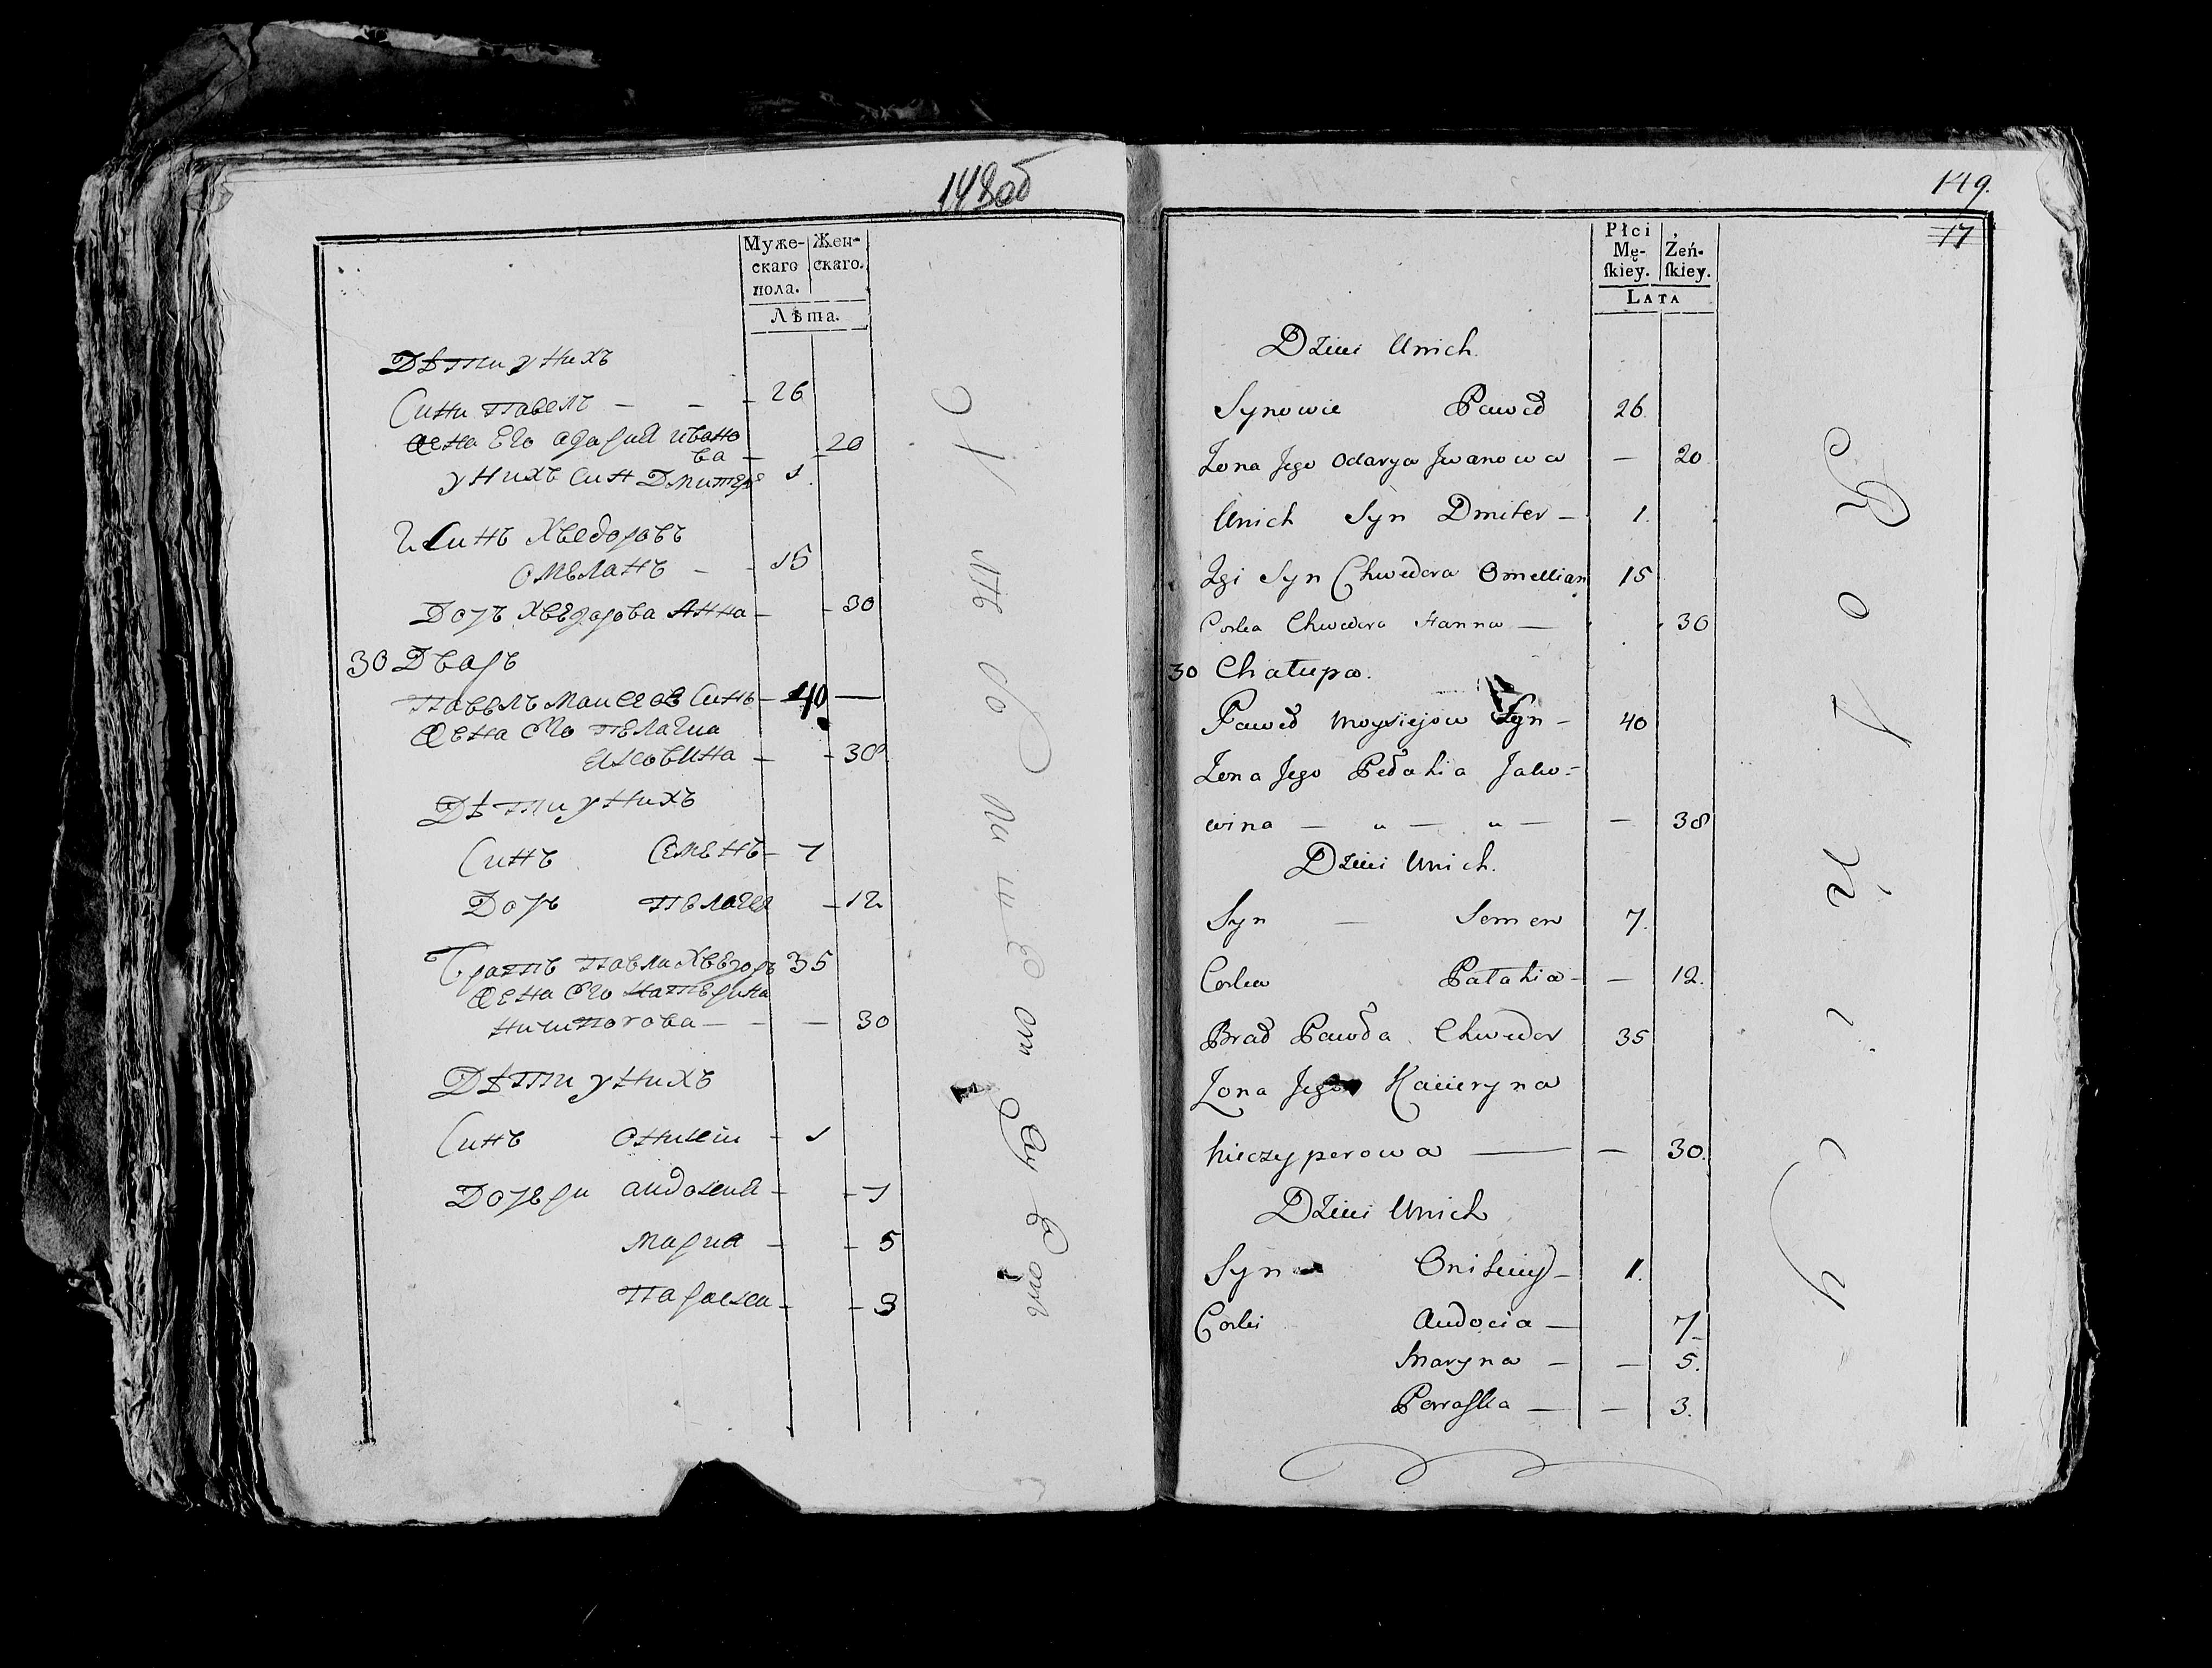 148об
Муже-
скаго
пола.
Жен-
скаго.
Лѣта.
Дѣти у нихъ
Сини Павелъ — — — 26
Жена Его Одария ивано
ва — — 20
у нихъ син Дмитеръ 1
2 Синъ Хведоровъ
Омеланъ — — 15
Дочъ Хведорова Анна — — 30
30 Дворъ
Павелъ Моисеов Синъ — 40 —
Жена Его Пелагиа
Яковина — — 38
Дѣти у нихъ
Синъ Семенъ — 7
Дочъ Пелагея — 12
Братъ Павла Хведоръ 35
Жена Его Катерина
Ничипорова — — — 30
Дѣти у нихъ
Синъ Онисеи — 1
Дочери Андосия — — 7
Мариа — — 5
Параска — — 3
149.
17
Płci
Mę-
ſkiey.
Żeń-
ſkiey.
Lata
Dzieci Unich.
Synowie Paweł 26.
Zona Jego Odarya Jwanowa — 20
Unich Syn Dmiter — 1.
2gi Syn Chwedora Omellian 15
Corka Chwedora Hanna — 30
30 Chałupa.
Paweł Moysiejow Syn — 40
Zona Jego Pełahia Jako=
wina — „ — „ — — 38
Dzieci Unich.
Syn — Semen 7.
Corka Pałahia — — 12.
Brad Pawła Chwedor 35
Zona Jego Kacieryna
Nieczyperowa — — 30.
Dzieci Unich
Syn — 1.
Corki Audocia — 7
Maryna — — 5.
Parraſka — — 3.